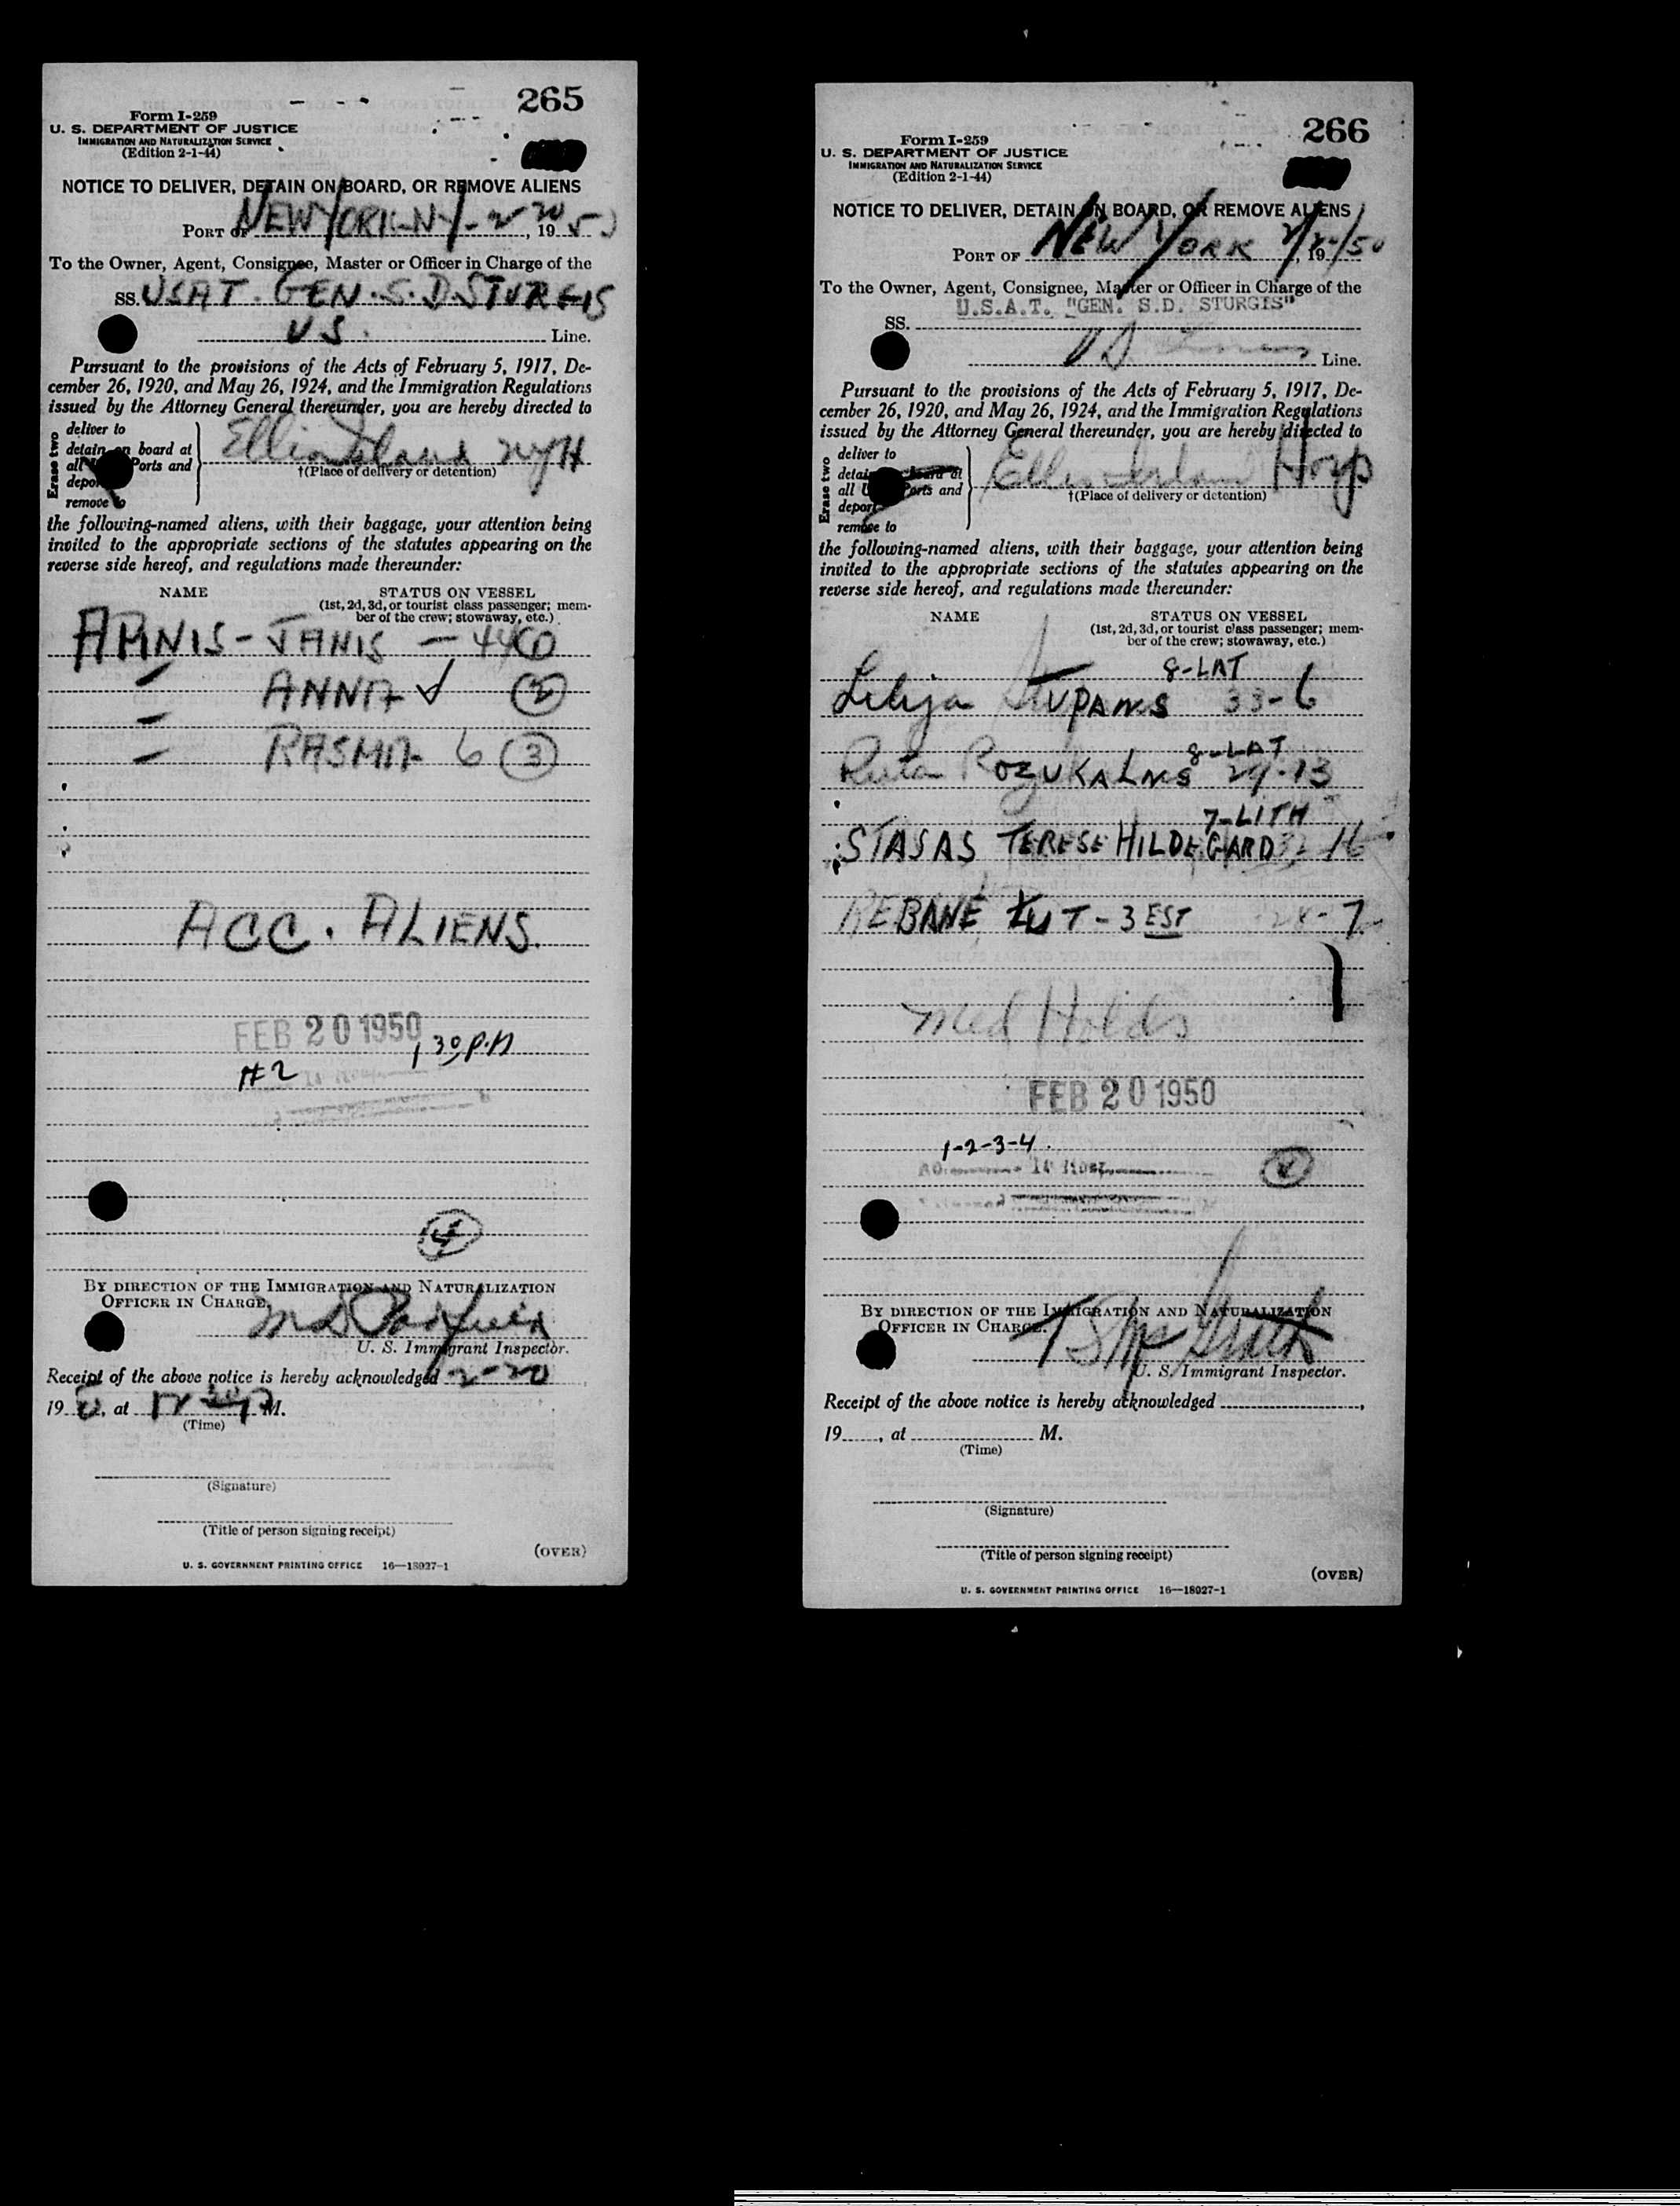 265
Form I-259
U. S. DEPARTMENT OF JUSTICE
IMMIGRATION AND NATURALIZATION SERVICE
(Edition 2-1-44)
NOTICE TO DELIVER, DETAIN ON BOARD, OR REMOVE ALIENS
PORT OF NEW YORK-NY-2 20, 19 50
To the Owner, Agent, Consignee, Master or Officer in Charge of the
SS. USAT. GEN. S. D. STURGIS
U S. Line.
Pursuant to the provisions of the Acts of February 5, 1917, De-
cember 26, 1920, and May 26, 1924, and the Immigration Regulations
issued by the Attorney General thereunder, you are hereby directed to
Erase two
deliver to
detain on board at
all Ports and
depor
remove to
Ellis Island NYH
†(Place of delivery or detention)
the following-named aliens, with their baggage, your attention being
invited to the appropriate sections of the statutes appearing on the
reverse side hereof, and regulations made thereunder:
NAME STATUS ON VESSEL
(1st, 2d, 3d, or tourist class passenger; mem-
ber of the crew; stowaway, etc.)
ARNIS - JANIS - 44 (1)
" ANNA ✓ (2)
" RASMA 6 (3)
ACC. ALIENS.
FEB 20 1950
1 30 P.M
#2
4
BY DIRECTION OF THE IMMIGRATION AND NATURALIZATION
OFFICER IN CHARGE.
U. S. Immigrant Inspector.
Receipt of the above notice is hereby acknowledged 2-20
19 , at M.
(Time)
(Signature)
(Title of person signing receipt)
(OVER)
U. S. GOVERNMENT PRINTING OFFICE 16—18027-1
266
Form I-259
U. S. DEPARTMENT OF JUSTICE
IMMIGRATION AND NATURALIZATION SERVICE
(Edition 2-1-44)
NOTICE TO DELIVER, DETAIN ON BOARD, OR REMOVE ALIENS
PORT OF NEW YORK 2/20, 19/50
To the Owner, Agent, Consignee, Master or Officer in Charge of the
SS. U.S.A.T. "GEN. S.D. STURGIS"
US Lines Line.
Pursuant to the provisions of the Acts of February 5, 1917, De-
cember 26, 1920, and May 26, 1924, and the Immigration Regulations
issued by the Attorney General thereunder, you are hereby directed to
Erase two
deliver to
detain on board at
all U Ports and
deport
remove to
Ellis Island Hosp
†(Place of delivery or detention)
the following-named aliens, with their baggage, your attention being
invited to the appropriate sections of the statutes appearing on the
reverse side hereof, and regulations made thereunder:
NAME STATUS ON VESSEL
(1st, 2d, 3d, or tourist class passenger; mem-
ber of the crew; stowaway, etc.)
8-LAT
Lilija STUPANS 33-6
8-LAT
Ruta ROZUKALNS 29-13
7-LITH
STASAS TERESE HILDEGARD 32 16
REBANE, - 3 EST 28-7
Med Holds
FEB 20 1950
1-2-3-4.
4
BY DIRECTION OF THE IMMIGRATION AND NATURALIZATION
OFFICER IN CHARGE.
T S McGrath
U. S. Immigrant Inspector.
Receipt of the above notice is hereby acknowledged ,
19 , at M.
(Time)
(Signature)
(Title of person signing receipt)
(OVER)
U. S. GOVERNMENT PRINTING OFFICE 16—18027-1